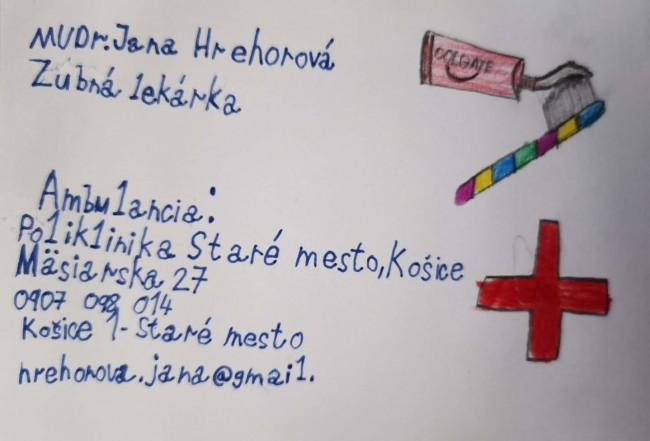 MUDr. Jana Hrehorová
Zubná lekárka
COLGATE
Ambulancia:
Poliklinika Staré mesto, Košice
Mäsiarska 27
0907 098 014
Košice 1 - Staré mesto
hrehorova.jana@gmail.